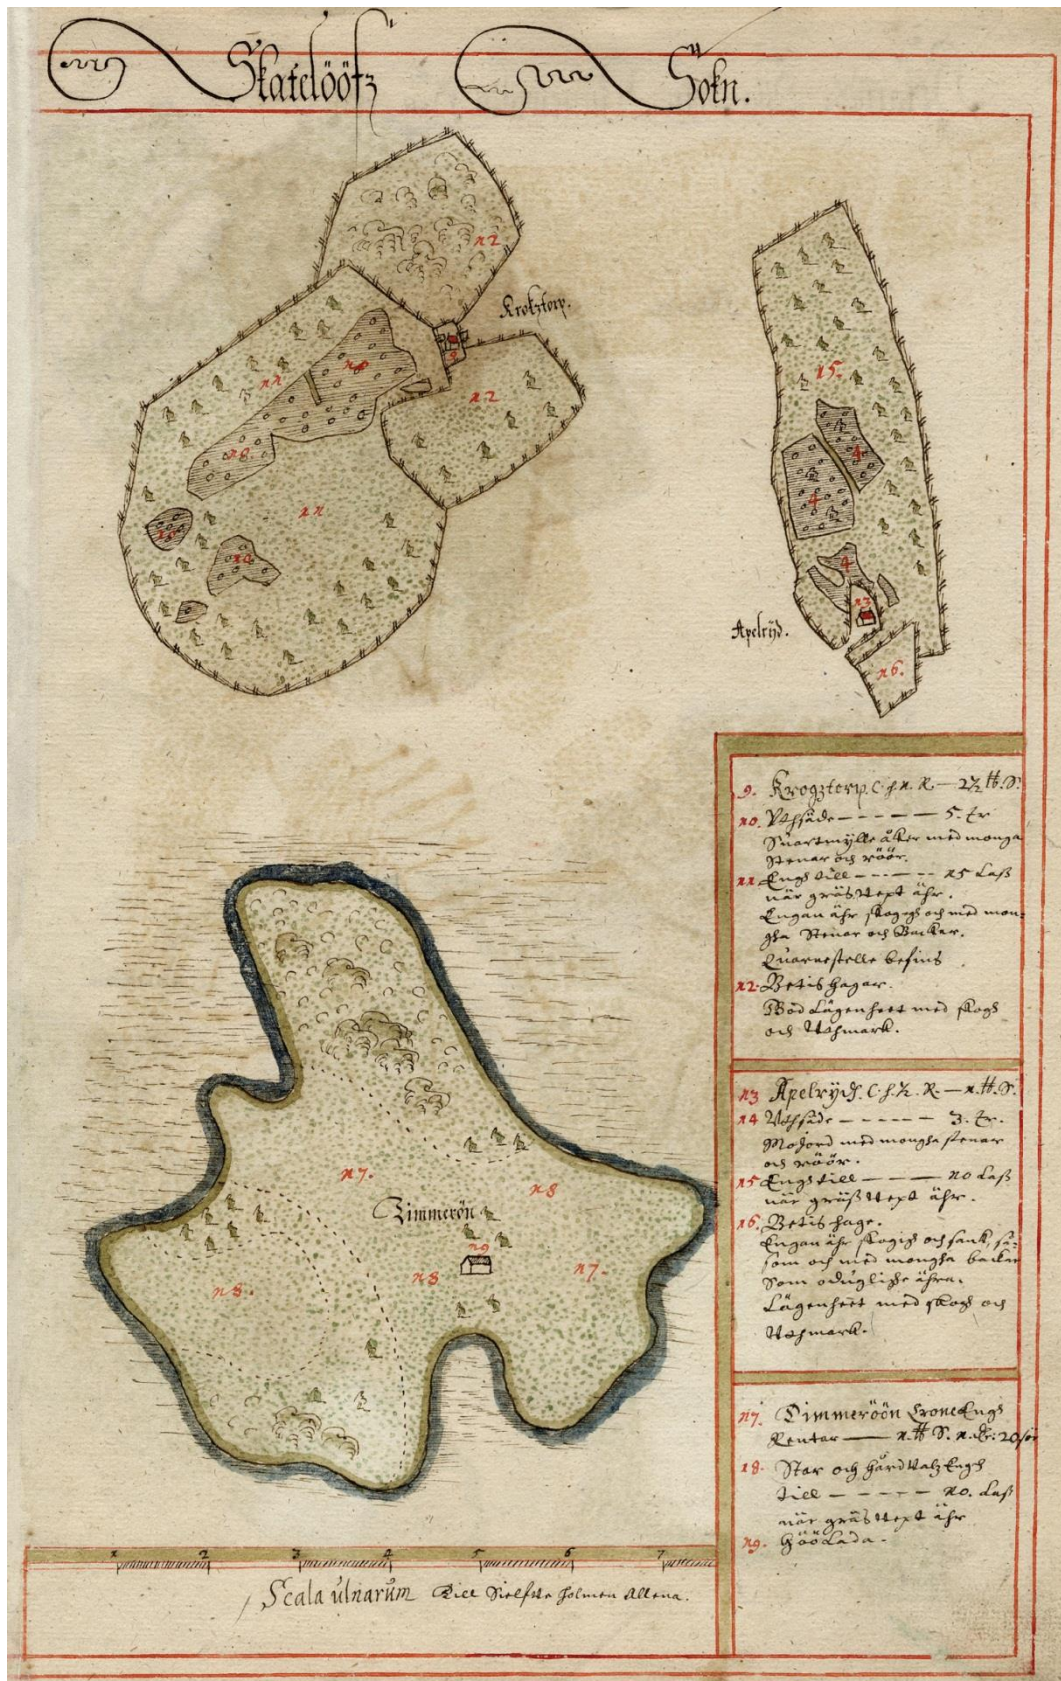 Skatelööfz Sökn.
12
Krokztorp.
9
11
10
12
10
11
10
10
15.
4
4
4
13
Apelrÿd.
16.
17.
18
Zimmerön
19
18
17.
18.
9. Krogztorp. C. h. 1. R. — 2½ ℔. S.
10. Uthsäde — — — — 5. tr
Suartmylle åker med monga
Stenar och röör.
11 Engh till — — — — 15 Laß
när gräs Wext ähr.
Engan ähr skogigh och med mon-
gha Stenar och Backar.
Quarnestelle befins
12. Betis hagar.
Lägenheet med skogh
och Uthmark.
13 Apelrÿdh. C. h. ½. R. — 1. ℔. S.
14 Uthsäde — — — — 3. tr.
Mojord med mongha stenar
och röör.
15 Engh till — — — 10 Laß
när gräß Wext ähr.
16. Betis hage.
Engan ähr skogigh och sank, så-
som och med mongha backar
Som oduglighe ähre.
Lägenheet med skogh och
Uthmark.
17. Zimmeröön Crone Engh
Rentar — 1 ℔ S. 1. 20
18. Star och hårdwalz Engh
till — — — — 10. Laß
när gräs Wext ähr
19. Höö Lada.
1 2 3 4 5 6 7
Scala ulnarum Till Sielfwe holmen Allena.